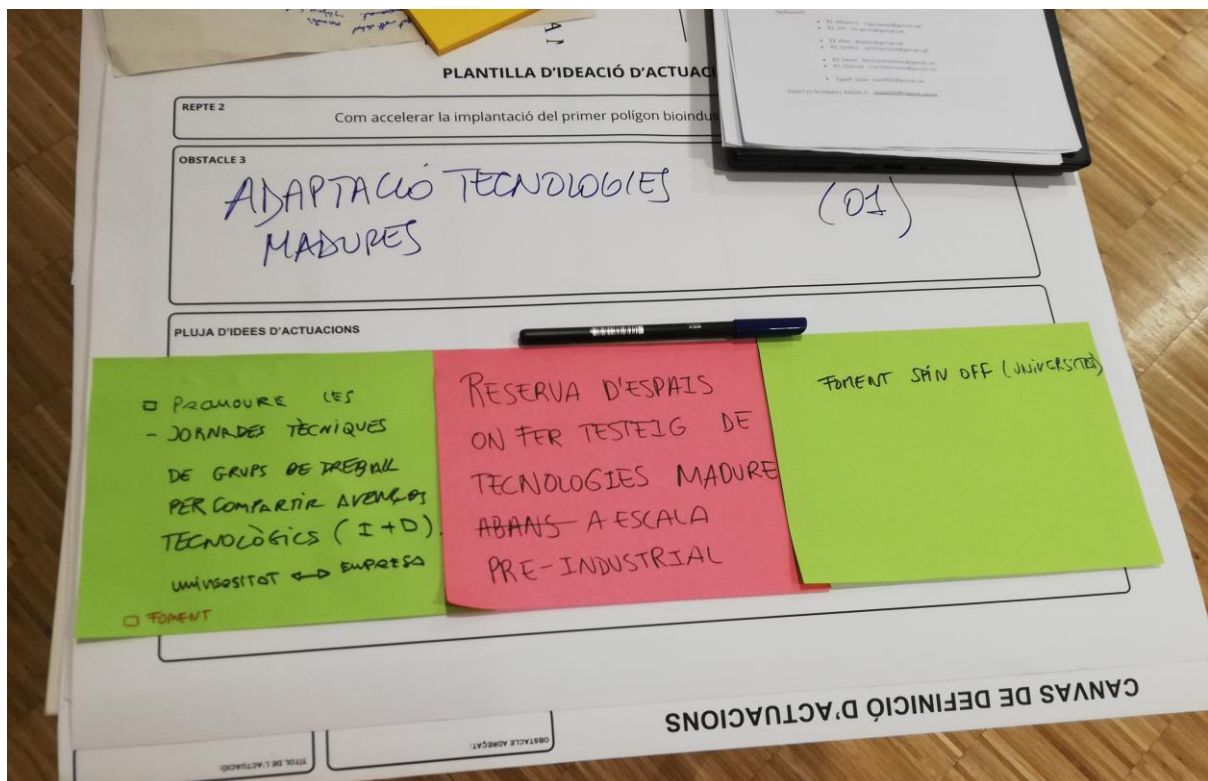 PLANTILLA D'IDEACIÓ D'ACTUACI
REPTE 2
Com accelerar la implantació del primer polígon bioindus
OBSTACLE 3
ADAPTACIÓ TECNOLOGIES (O1)
MADURES
PLUJA D'IDEES D'ACTUACIONS
PROMOURE LES
- JORNADES TÈCNIQUES
DE GRUPS DE TREBALL
PER COMPARTIR AVENÇOS
TECNOLÒGICS (I+D).
UNIVERSITAT ↔ EMPRESA
FOMENT
RESERVA D'ESPAIS
ON FER TESTEIG DE
TECNOLOGIES MADURE
ABANS A ESCALA
PRE-INDUSTRIAL
FOMENT SPIN OFF (UNIVERSITAT)
CANVAS DE DEFINICIÓ D'ACTUACIONS
OBSTACLE ADREÇAT:
TÍTOL DE L'ACTUACIÓ: